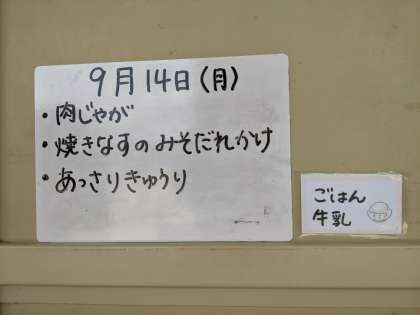 9月14日(月)
・肉じゃが
・焼きなすのみそだれかけ
・あっさりきゅうり
ごはん
牛乳